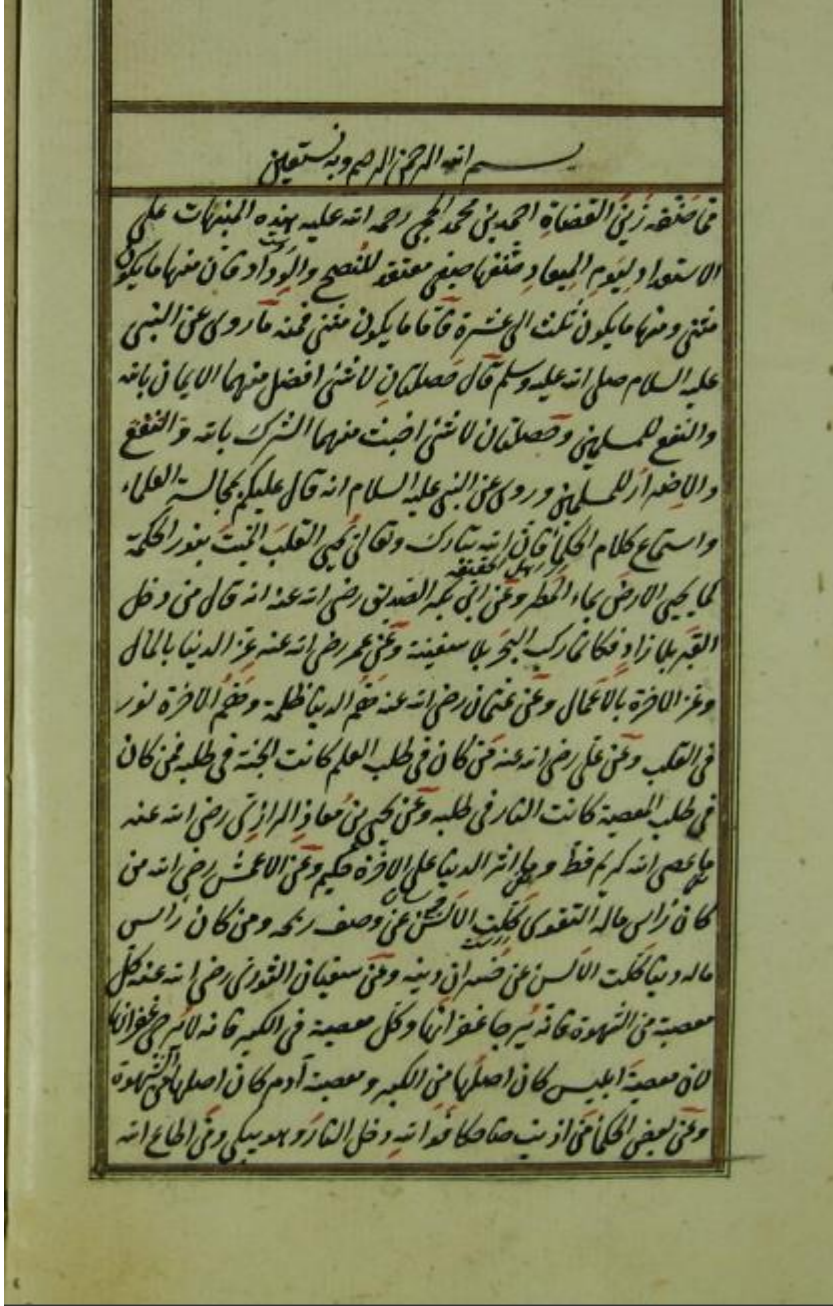 بسم الله الرحمن الرحيم وبه نستعين
مما صنفه زين القضاة احمد بن محمد الحجى رحمه الله عليه بهذه المنبهات على
الاستعداد ليوم الميعاد صنفها صيفى معتقد للنصح والوداد فان منها ما يكون
مثنى ومنها ما يكون ثلث الى عشرة فاما ما يكون مثنى فمنه ما روى عن النبى
عليه السلام صلى الله عليه وسلم قال خصلتان لا شئ افضل منهما الايمان بالله
والنفع للمسلمين وخصلتان لا شئ اخبث منهما الشرك بالله
والاضرار للمسلمين وروى عن النبى عليه السلام انه قال عليكم بمجالسة العلماء
واستماع كلام الحكماء فان الله تبارك وتعالى يحيى القلب الميت بنور الحكمة
كما يحيى الارض بماء المطر وعن ابى بكر الصديق رضى الله عنه انه قال من دخل
القبر بلا زاد فكانما ركب البحر بلا سفينة وعن عمر رضى الله عنه عز الدنيا بالمال
وعز الاخرة بالاعمال وعن عثمان رضى الله عنه هم الدنيا ظلمة وهم الاخرة نور
فى القلب وعن على رضى الله عنه من كان فى طلب العلم كانت الجنة فى طلبه فمن كان
فى طلب المعصية كانت النار فى طلبه وعن يحيى بن معاذ الرازى رضى الله عنه
ما عصى الله كريم قط وما اثر الدنيا على الاخرة حكيم وعن الاعمش رضى الله من
كان راس ماله التقوى كلت الالسن عن وصف ربحه ومن كان راس
ماله دنيا كلت الالسن عن خسران دينه وعن سفيان الثورى رضى الله عنه كل
معصية من الشهوة فانه يرجا غفرانها وكل معصية فى الكبر فانه لا يرجى غفرانها
لان معصية ابليس كان اصلها من الكبر ومعصية آدم كان اصلها من الشهوة
وعن بعض الحكماء من اذنب ضاحكا فوالله دخل النار وهو يبكى ومن اطاع الله